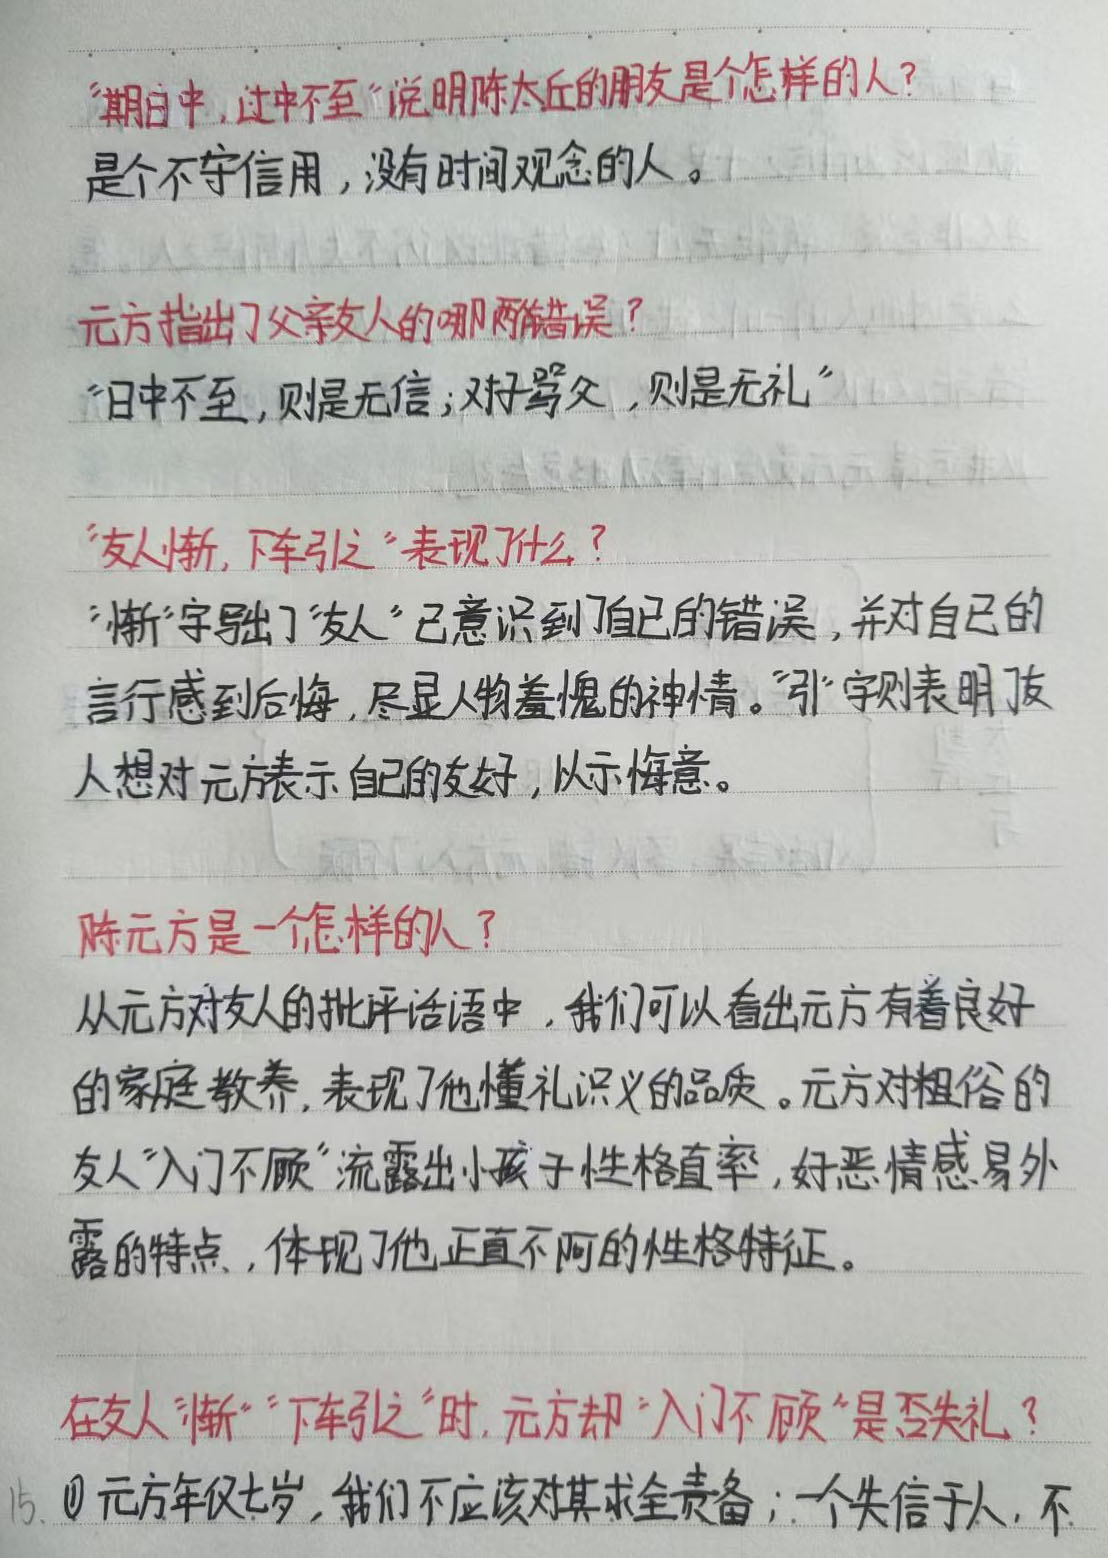 “期日中，过中不至”说明陈太丘的朋友是个怎样的人？
是个不守信用，没有时间观念的人。
元方指出了父亲友人的哪两错误？
“日中不至，则是无信；对子骂父，则是无礼”
“友人惭，下车引之”表现了什么？
“惭”字写出了“友人”已意识到了自己的错误，并对自己的
言行感到后悔，尽显人物羞愧的神情。“引”字则表明了友
人想对元方表示自己的友好，以示悔意。
陈元方是一个怎样的人？
从元方对友人的批评话语中，我们可以看出元方有着良好
的家庭教养，表现了他懂礼识义的品质。元方对粗俗的
友人“入门不顾”流露出小孩子性格直率，好恶情感易外
露的特点，体现了他正直不阿的性格特征。
在友人“惭”“下车引之”时，元方却“入门不顾”是否失礼？
15. ① 元方年仅七岁，我们不应该对其求全责备；一个失信于人，不